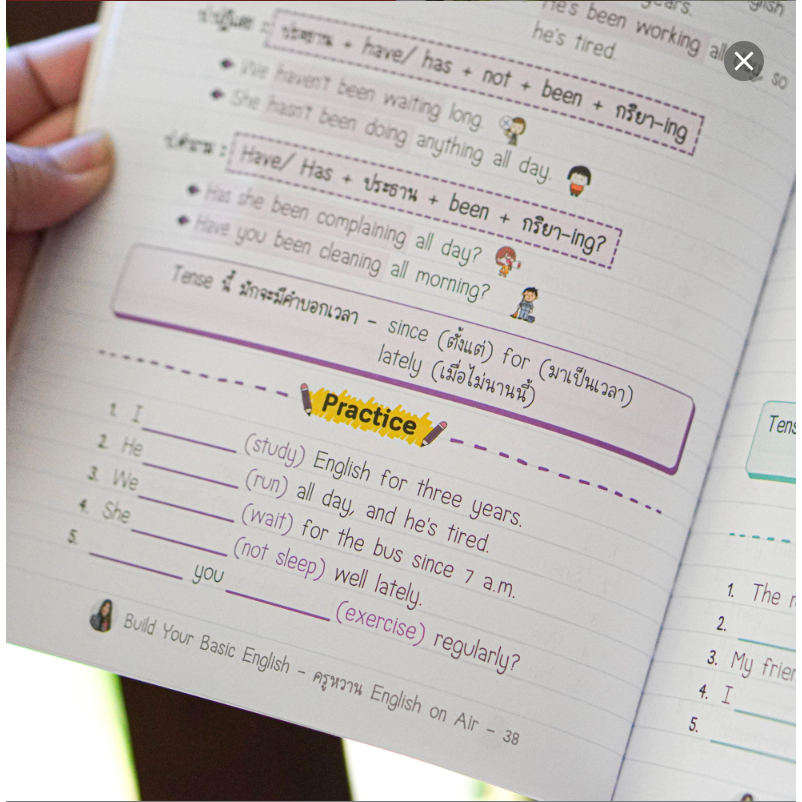 years.
he's been working all day, so
he's tired.
ปฏิเสธ : ประธาน + have/ has + not + been + กริยา-ing
We haven't been waiting long.
She hasn't been doing anything all day.
คำถาม : Have/ Has + ประธาน + been + กริยา-ing?
Has she been complaining all day?
Have you been cleaning all morning?
Tense นี้ มักจะมีคำบอกเวลา - since (ตั้งแต่) for (มาเป็นเวลา)
lately (เมื่อไม่นานนี้)
Practice
1. I (study) English for three years.
2. He (run) all day, and he's tired.
3. We (wait) for the bus since 7 a.m.
4. She (not sleep) well lately.
5. you (exercise) regularly?
Build Your Basic English - ครูหวาน English on Air - 38
1. The
2.
3. My
4. I
5.